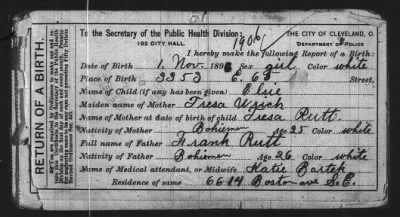 RETURN OF A BIRTH.
To the Secretary of the Public Health Division: THE CITY OF CLEVELAND, O.
102 CITY HALL. 1906 DEPARTMENT OF POLICE
I hereby make the following Report of a Birth:
Date of Birth 1 Nov. Sex girl Color white
Place of Birth 3353 E. 65. Street.
Name of Child (if any has been given) Elsie
Maiden name of Mother Tresa
Name of Mother at date of birth of child Tresa Rutt.
Nativity of Mother Bohiemen Age 25 Color white
Full name of Father Frank Rutt
Nativity of Father Bohiemen Age 26 Color white
Name of Medical attendant, or Midwife. Katie Bartek
Residence of same 6614 Boston ave S.E.